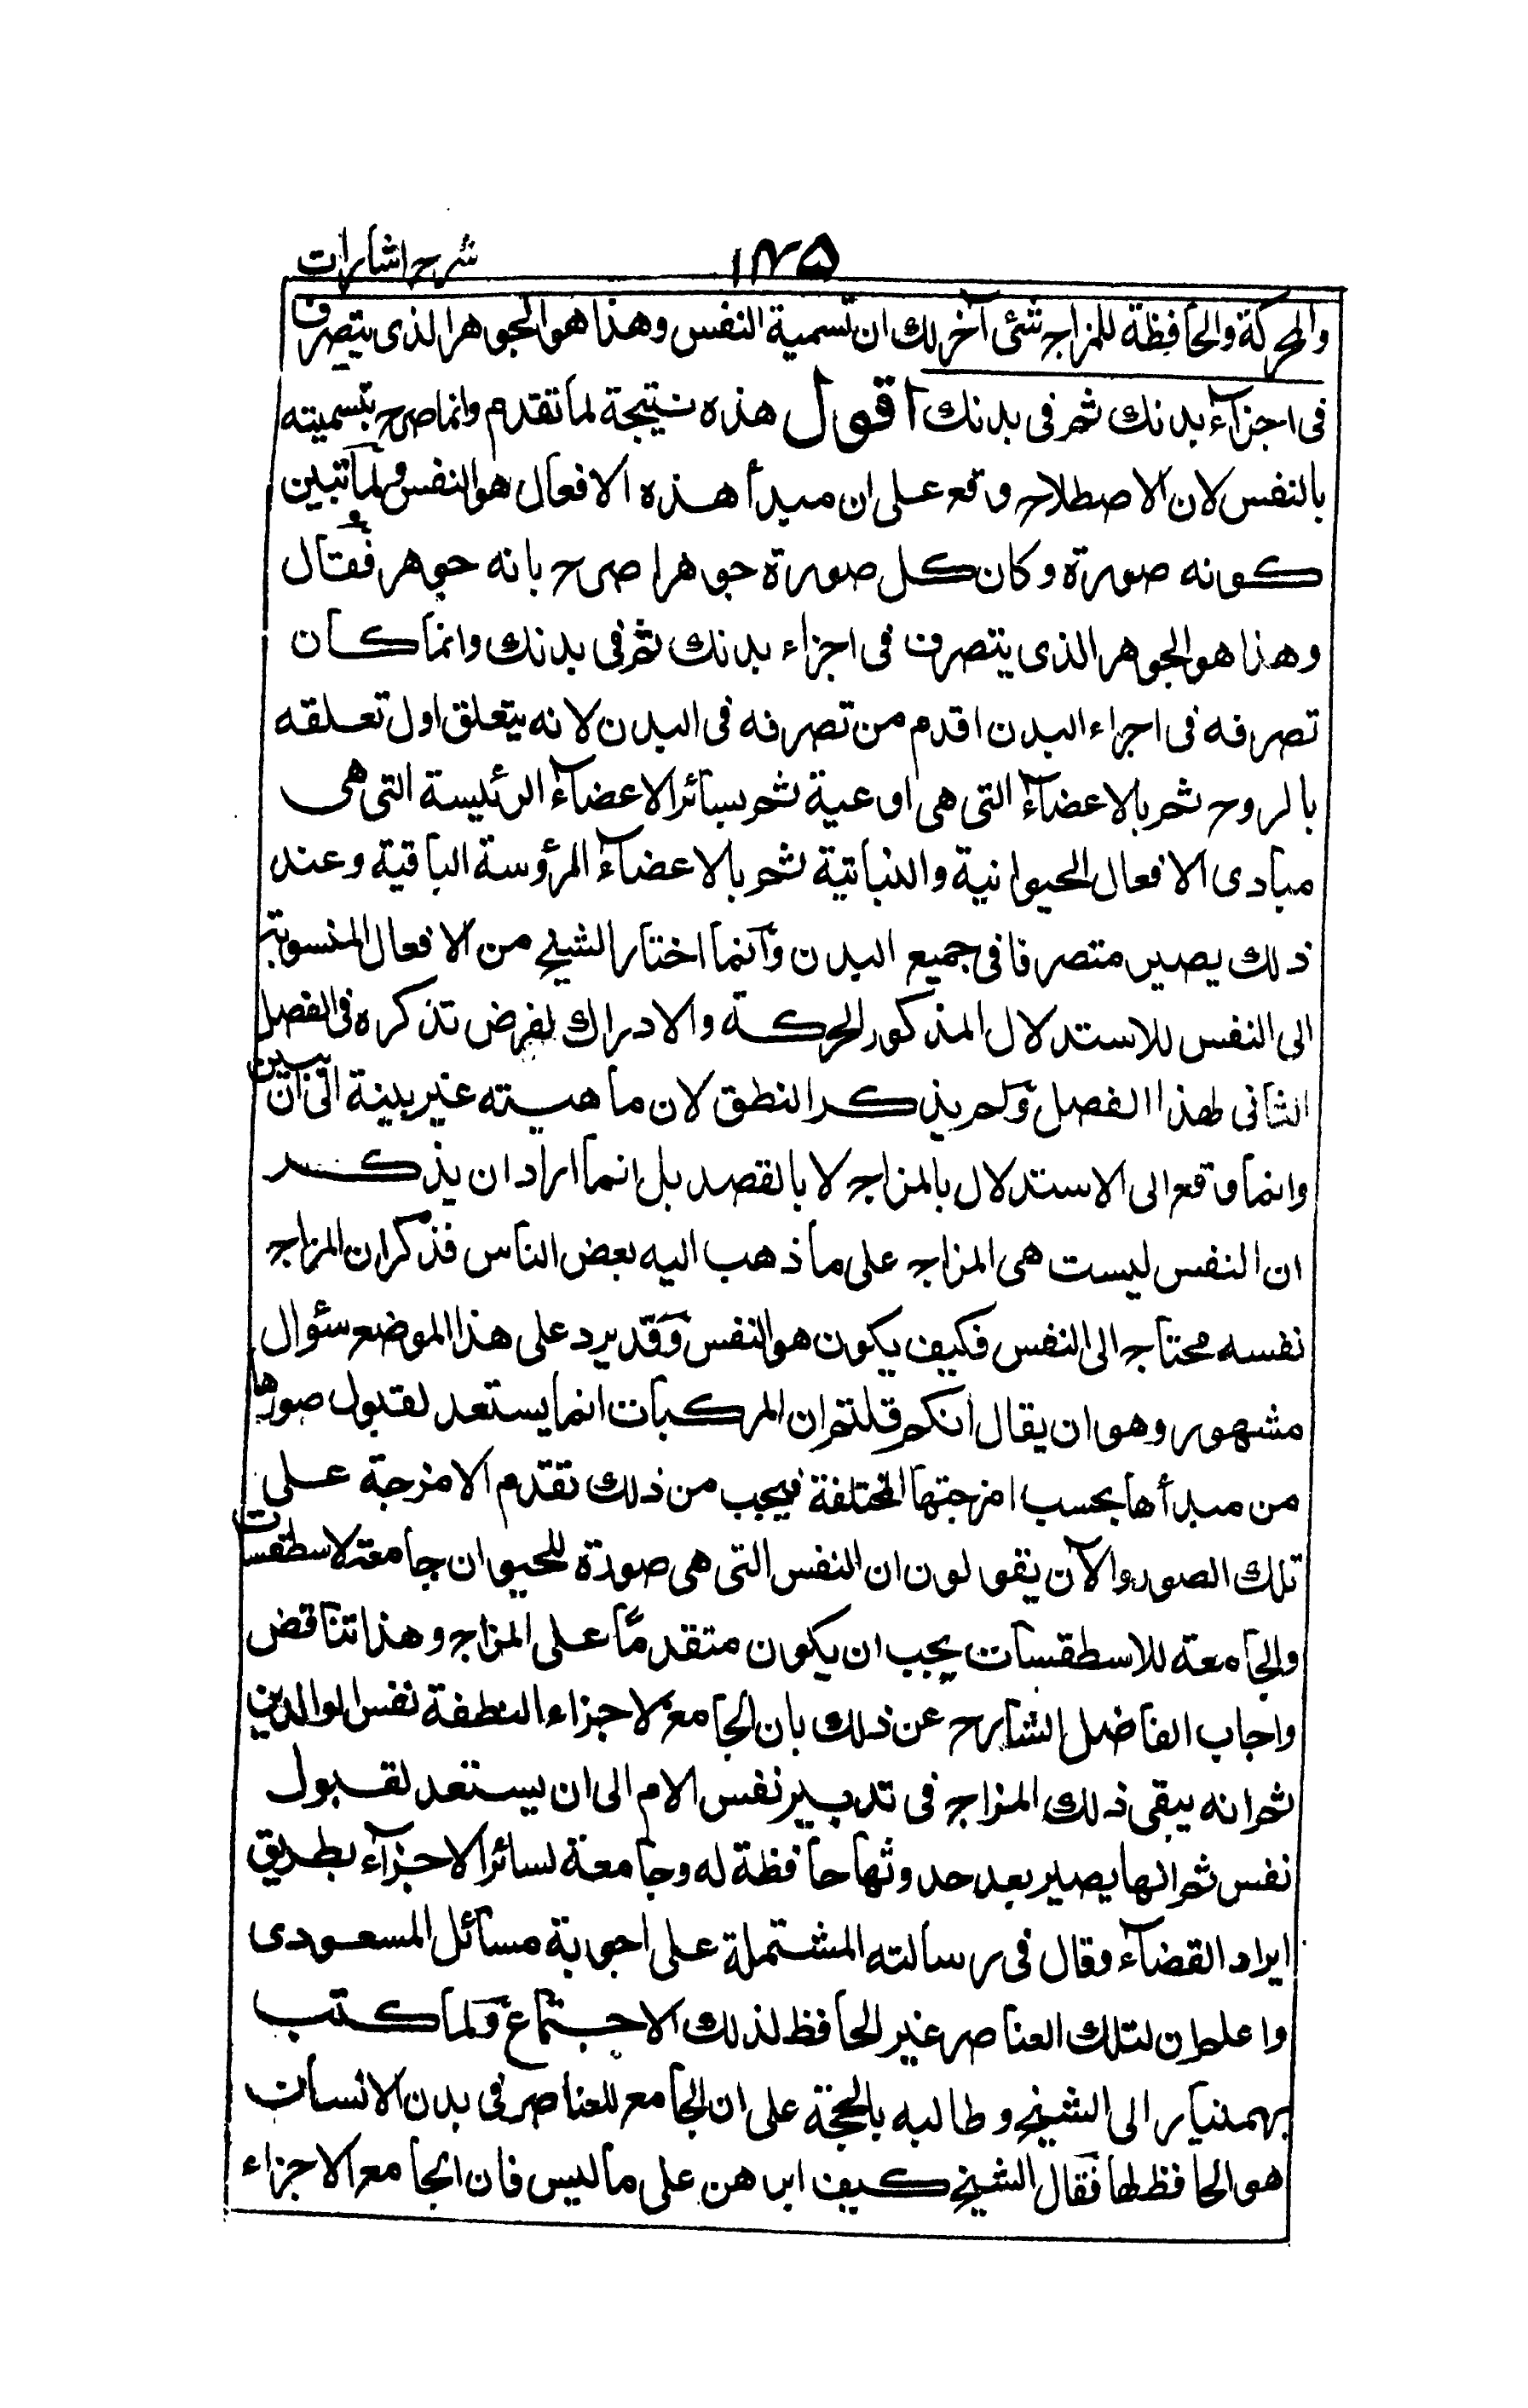 ١٣٥ شرح اشارات
والمحركة والحافظة للمزاج شئى آخر لك ان تسمية النفس وهذا هو الجوهر الذى يتصرف
فى اجزآء بدنك ثم فى بدنك اقول هذه نتيجة لما تقدم وانما صرح بتسميته
بالنفس لان الاصطلاح وقع على ان مبدأ هذه الافعال هو النفس ولما تبين
كونه صورة وكان كل صورة جوهرا صرح بانه جوهر فقال
وهذا هو الجوهر الذى يتصرف فى اجزاء بدنك ثم فى بدنك وانما كان
تصرفه فى اجزاء البدن اقدم من تصرفه فى البدن لانه يتعلق اول تعلقه
بالروح ثم بالاعضآء التى هى اوعية ثم بسائر الاعضآء الرئيسة التى هى
مبادى الافعال الحيوانية والنباتية ثم بالاعضآء المرؤسة الباقية وعند
ذلك يصير متصرفا فى جميع البدن وانما اختار الشيخ من الافعال المنسوبة
الى النفس للاستدلال المذكور الحركة والادراك لغرض تذكره فى الفصل
الثانى لهذا الفصل ولم يذكر النطق لان ماهيته غير بينة الى ان تبين
وانما وقع الى الاستدلال بالمزاج لا بالقصد بل انما اراد ان يذكر
ان النفس ليست هى المزاج على ما ذهب اليه بعض الناس فذكر ان المزاج
نفسه محتاج الى النفس فكيف يكون هو النفس وقد يرد على هذا الموضع سئوال
مشهور وهو ان يقال انكم قلتم ان المركبات انما يستعد لقبول صورها
من مبدأها بحسب امزجتها المختلفة فيجب من ذلك تقدم الامزجة على
تلك الصور والآن يقولون ان النفس التى هى صورة للحيوان جامعة لاسطقسات
والجامعة للاسطقسات يجب ان يكون متقدمًا على المزاج وهذا تناقض
واجاب الفاضل الشارح عن ذلك بان الجامع لاجزاء النطفة نفس الوالدين
ثم انه يبقى ذلك المزاج فى تدبير نفس الام الى ان يستعد لقبول
نفس ثم انها يصير بعد حدوثها حافظة له وجامعة لسائر الاجزآء بطريق
ايراد القضآء وقال فى رسالته المشتملة على اجوبة مسآئل المسعودى
واعلم ان لتلك العناصر غير الحافظ لذلك الاجتماع ولما كتب
بهمنيار الى الشيخ وطالبه بالحجة على ان الجامع للعناصر فى بدن الانسان
هو الحافظ لها فقال الشيخ كيف ابرهن على ما ليس فان الجامع الاجزاء